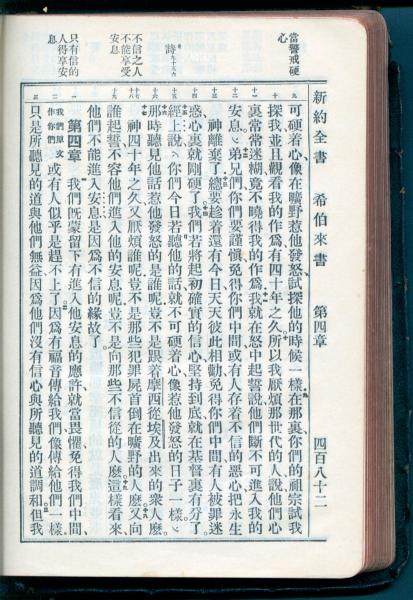 新約全書 希伯來書 第四章 四百八十二
當警戒硬
心
詩
不信之人
不能享受
安息
只有信的
人得享安
息
可硬着心像在曠野惹他發怒試探他的時候一樣、在那裏你們的祖宗試我
探我並且觀看我的作爲有四十年之久所以我厭煩那世代的人說他們心
裏常常迷糊竟不曉得我的作爲我就在怒中起誓說他們斷不可進入我的
安息。弟兄們你們要謹慎免得你們中間或有人存着不信的惡心把永生
神離棄了總要趁着還有今日天天彼此相勸免得你們中間有人被罪迷
惑心裏就剛硬了我們若將起初確實的信心堅持到底就在基督裏有分了。
經上說、你們今日若聽他的話就不可硬着心像惹他發怒的日子一樣、
那時聽見他話惹他發怒的是誰呢豈不是跟着摩西從埃及出來的衆人麽
神四十年之久又厭煩誰呢豈不是那些犯罪屍首倒在曠野的人麽又向
誰起誓不容他們進入他的安息呢豈不是向那些不信從的人麽這樣看來
他們不能進入安息是因爲不信的緣故了。
第四章 我們旣蒙留下有進入他安息的應許就當畏懼免得我們中間、
我們原文作你們 或有人似乎是趕不上了因爲有福音傳給我們像傳給他們一樣
只是所聽見的道與他們無益因爲他們沒有信心與所聽見的道調和但我